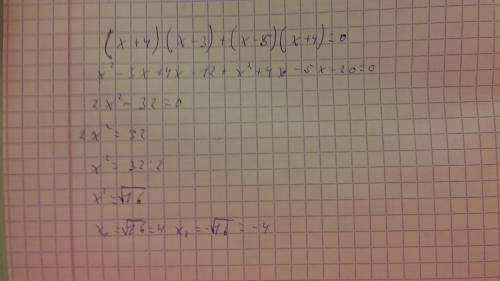 (x+4)(x-3)+(x-5)(x+4)=0
x²-3x+4x-12+x²+4x-5x-20=0
2x²-32=0
2x²=32
x²=32:2
x²=√16
x₁=√16=4 x₂=-√16=-4